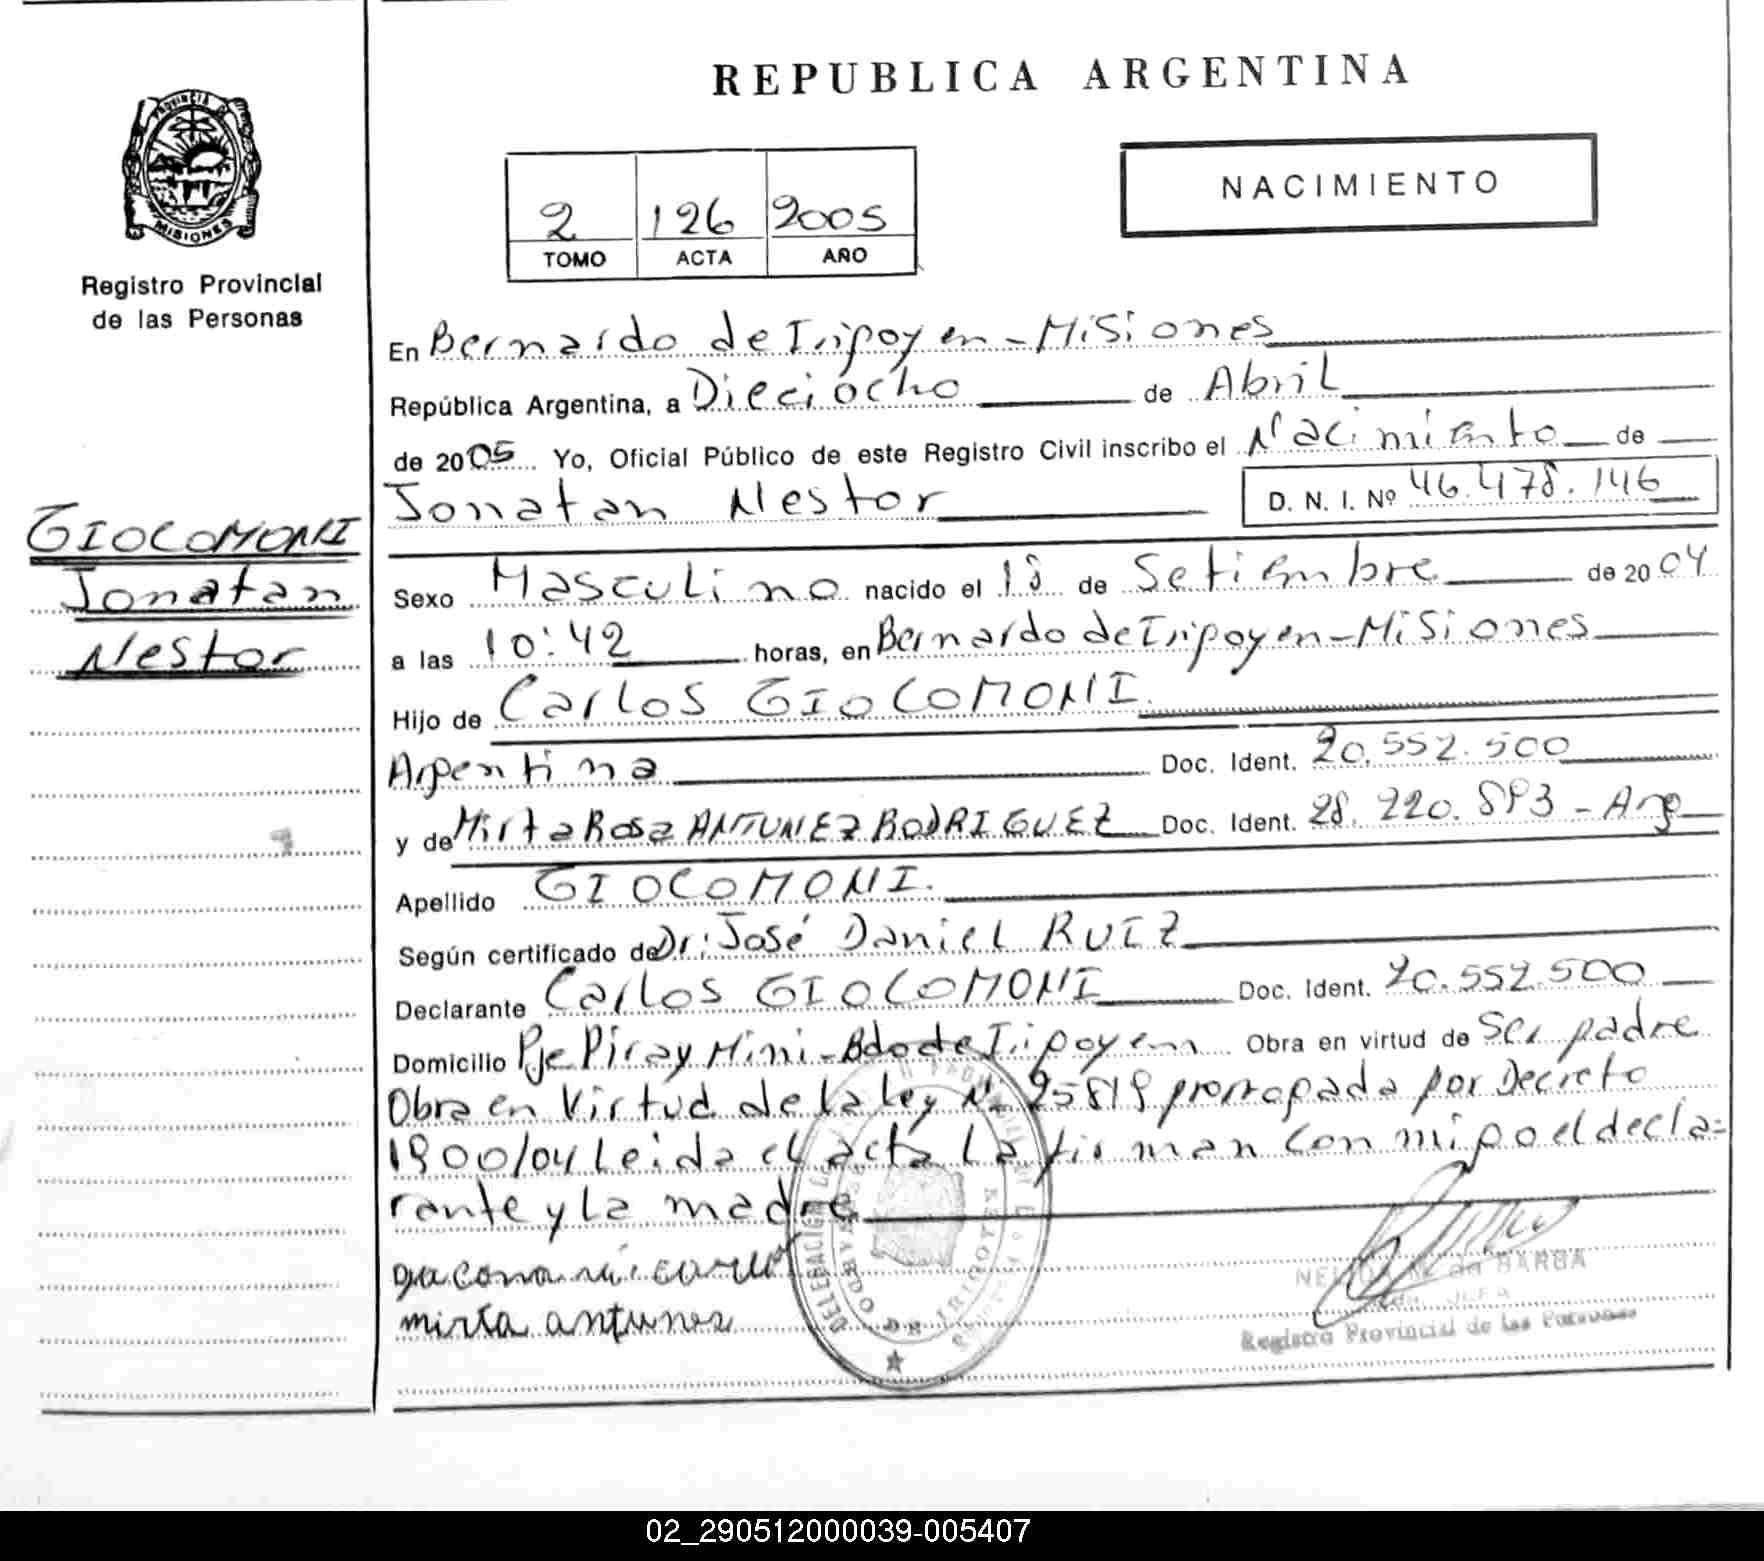 REPUBLICA ARGENTINA
PROVINCIA DE
MISIONES
Registro Provincial
de las Personas
2 126 2005
TOMO ACTA AÑO
NACIMIENTO
En Bernardo de Irigoyen - Misiones
República Argentina, a Dieciocho de Abril
de 2005 Yo, Oficial Público de este Registro Civil inscribo el Nacimiento de
Jonatan Nestor D. N. I. Nº 46.478.146
GIOCOMONI
Jonatan
Nestor
Sexo Masculino nacido el 18 de Setiembre de 2004
a las 10:42 horas, en Bernardo de Irigoyen - Misiones
Hijo de Carlos GIOCOMONI.
Argentina Doc. Ident. 20.552.500
y de Mirta Rosa ANTUNEZ RODRIGUEZ Doc. Ident. 28.220.893 - Arg
Apellido GIOCOMONI.
Según certificado de Dr: José Daniel RUIZ
Declarante Carlos GIOCOMONI Doc. Ident. 20.552.500
Domicilio Pje Piray Mini - Bdo de Irigoyen Obra en virtud de Ser padre
Obra en Virtud de la Ley Nº 25819 prorrogada por Decreto
1900/04 Leida el acta La firman conmigo el decla=
rante y La madre
mirta antunez
DE BARBA
Registro Provincial de las Personas
02_290512000039-005407